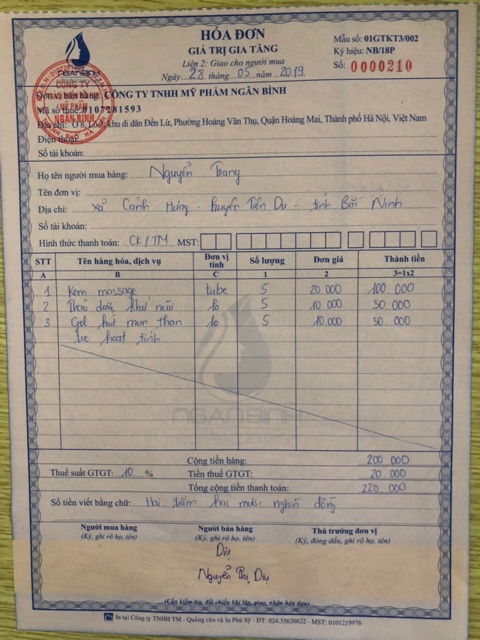 HÓA ĐƠN
GIÁ TRỊ GIA TĂNG
Liên 2: Giao cho người mua
Ngày 28 tháng 05 năm 2019
Mẫu số: 01GTKT3/002
Ký hiệu: NB/18P
Số: 0000210
NGANBINH
Đơn vị bán hàng: CÔNG TY TNHH MỸ PHẨM NGÂN BÌNH
Mã số thuế: 0107281593
Địa chỉ: Ô 8, Lô 3, khu di dân Đền Lừ, Phường Hoàng Văn Thụ, Quận Hoàng Mai, Thành phố Hà Nội, Việt Nam
Điện thoại:
Số tài khoản:
Họ tên người mua hàng: Nguyễn Trang
Tên đơn vị:
Địa chỉ: xã Cảnh Hưng - Huyện Tiên Du - tỉnh Bắc Ninh
Số tài khoản:
Hình thức thanh toán: CK/TM MST:
STT Tên hàng hóa, dịch vụ Đơn vị tính Số lượng Đơn giá Thành tiền
A B C 1 2 3=1x2
1 Kem massage tube 5 20.000 100 000
2 khử mùi lọ 5 10.000 50 000
3 Gel hút mụn than lọ 5 10.000 50 000
hoạt tính
NGANBINH
Cộng tiền hàng: 200 000
Thuế suất GTGT: 10 % Tiền thuế GTGT: 20 000
Tổng cộng tiền thanh toán: 220 000
Số tiền viết bằng chữ: Hai trăm hai mươi nghìn đồng
Người mua hàng Người bán hàng Thủ trưởng đơn vị
(Ký, ghi rõ họ, tên) (Ký, ghi rõ họ, tên) (Ký, đóng dấu, ghi rõ họ, tên)
Nguyễn Thị
(Cần kiểm tra, đối chiếu khi lập, giao, nhận hóa đơn)
In tại Công ty TNHH TM - Quảng cáo và In Phú Sỹ - ĐT: 024.35626622 - MST: 0101219976